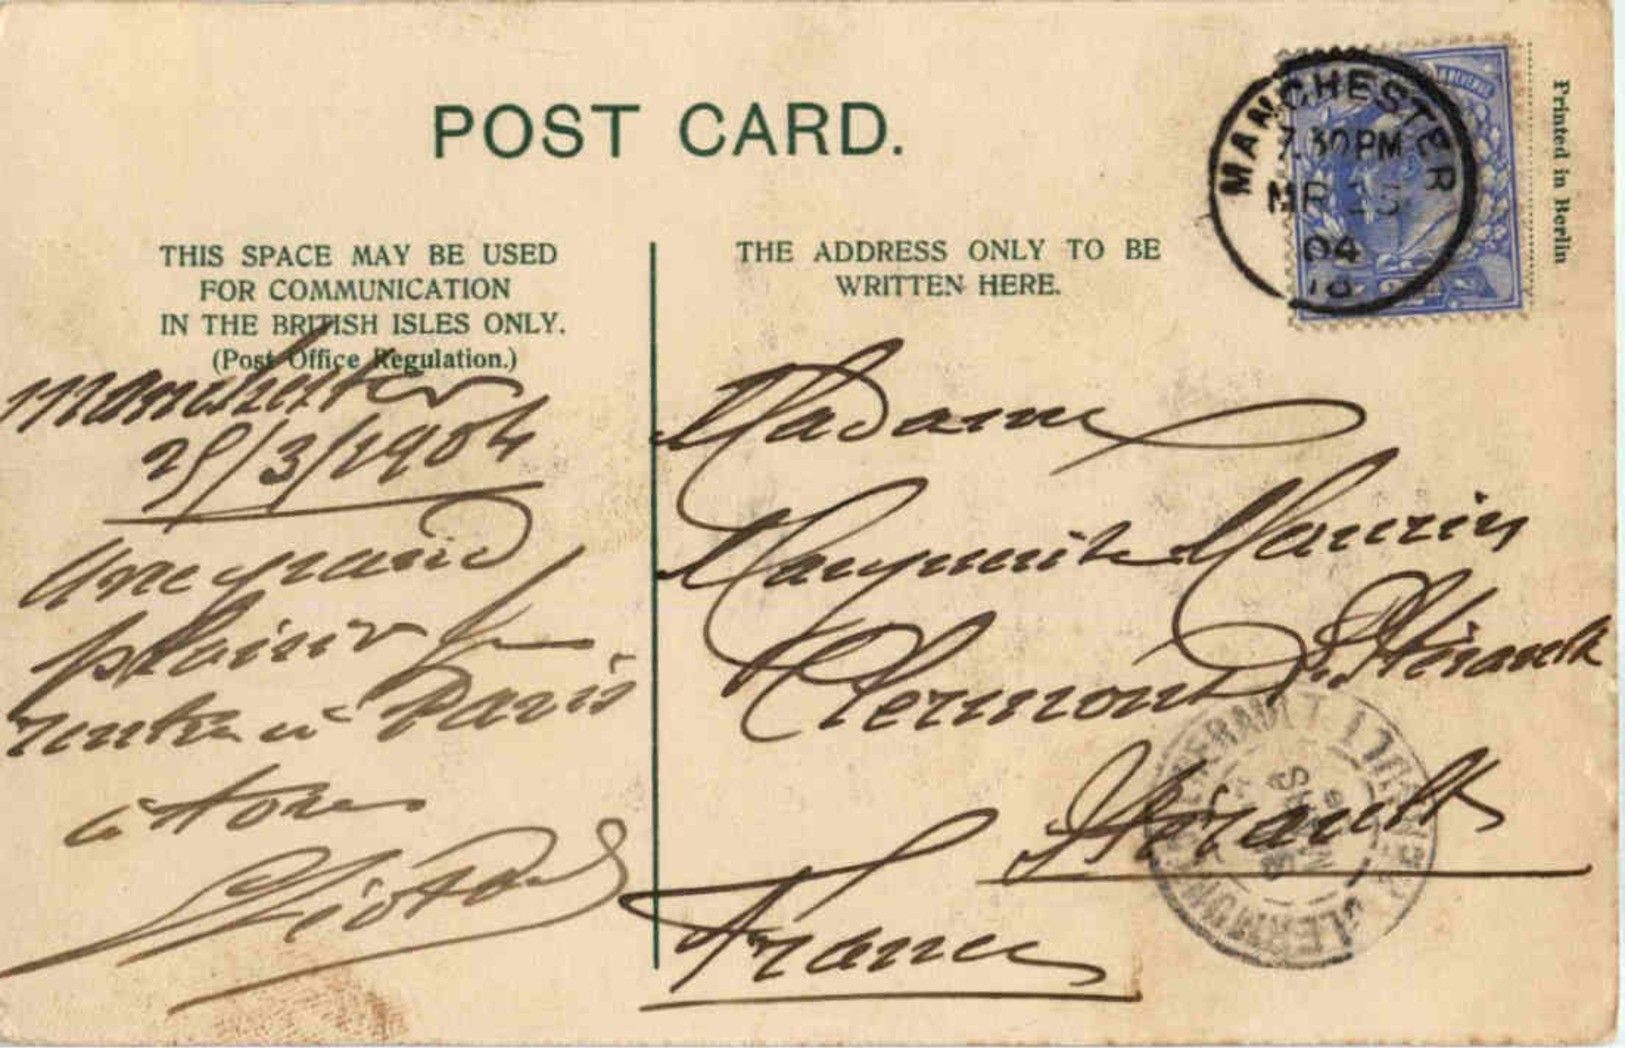 POST CARD.
MANCHESTER
7.30PM
MR 25
04
Printed in Berlin
THIS SPACE MAY BE USED
FOR COMMUNICATION
IN THE BRITISH ISLES ONLY.
(Post Office Regulation.)
THE ADDRESS ONLY TO BE
WRITTEN HERE.
Manchester
25/3/1904
Une grand
plaisir
rentre à Paris
Madame
Marguerite Maurin
Clermont L'Hérault
Hérault
France
CLERMONT L'HERAULT
HERAULT